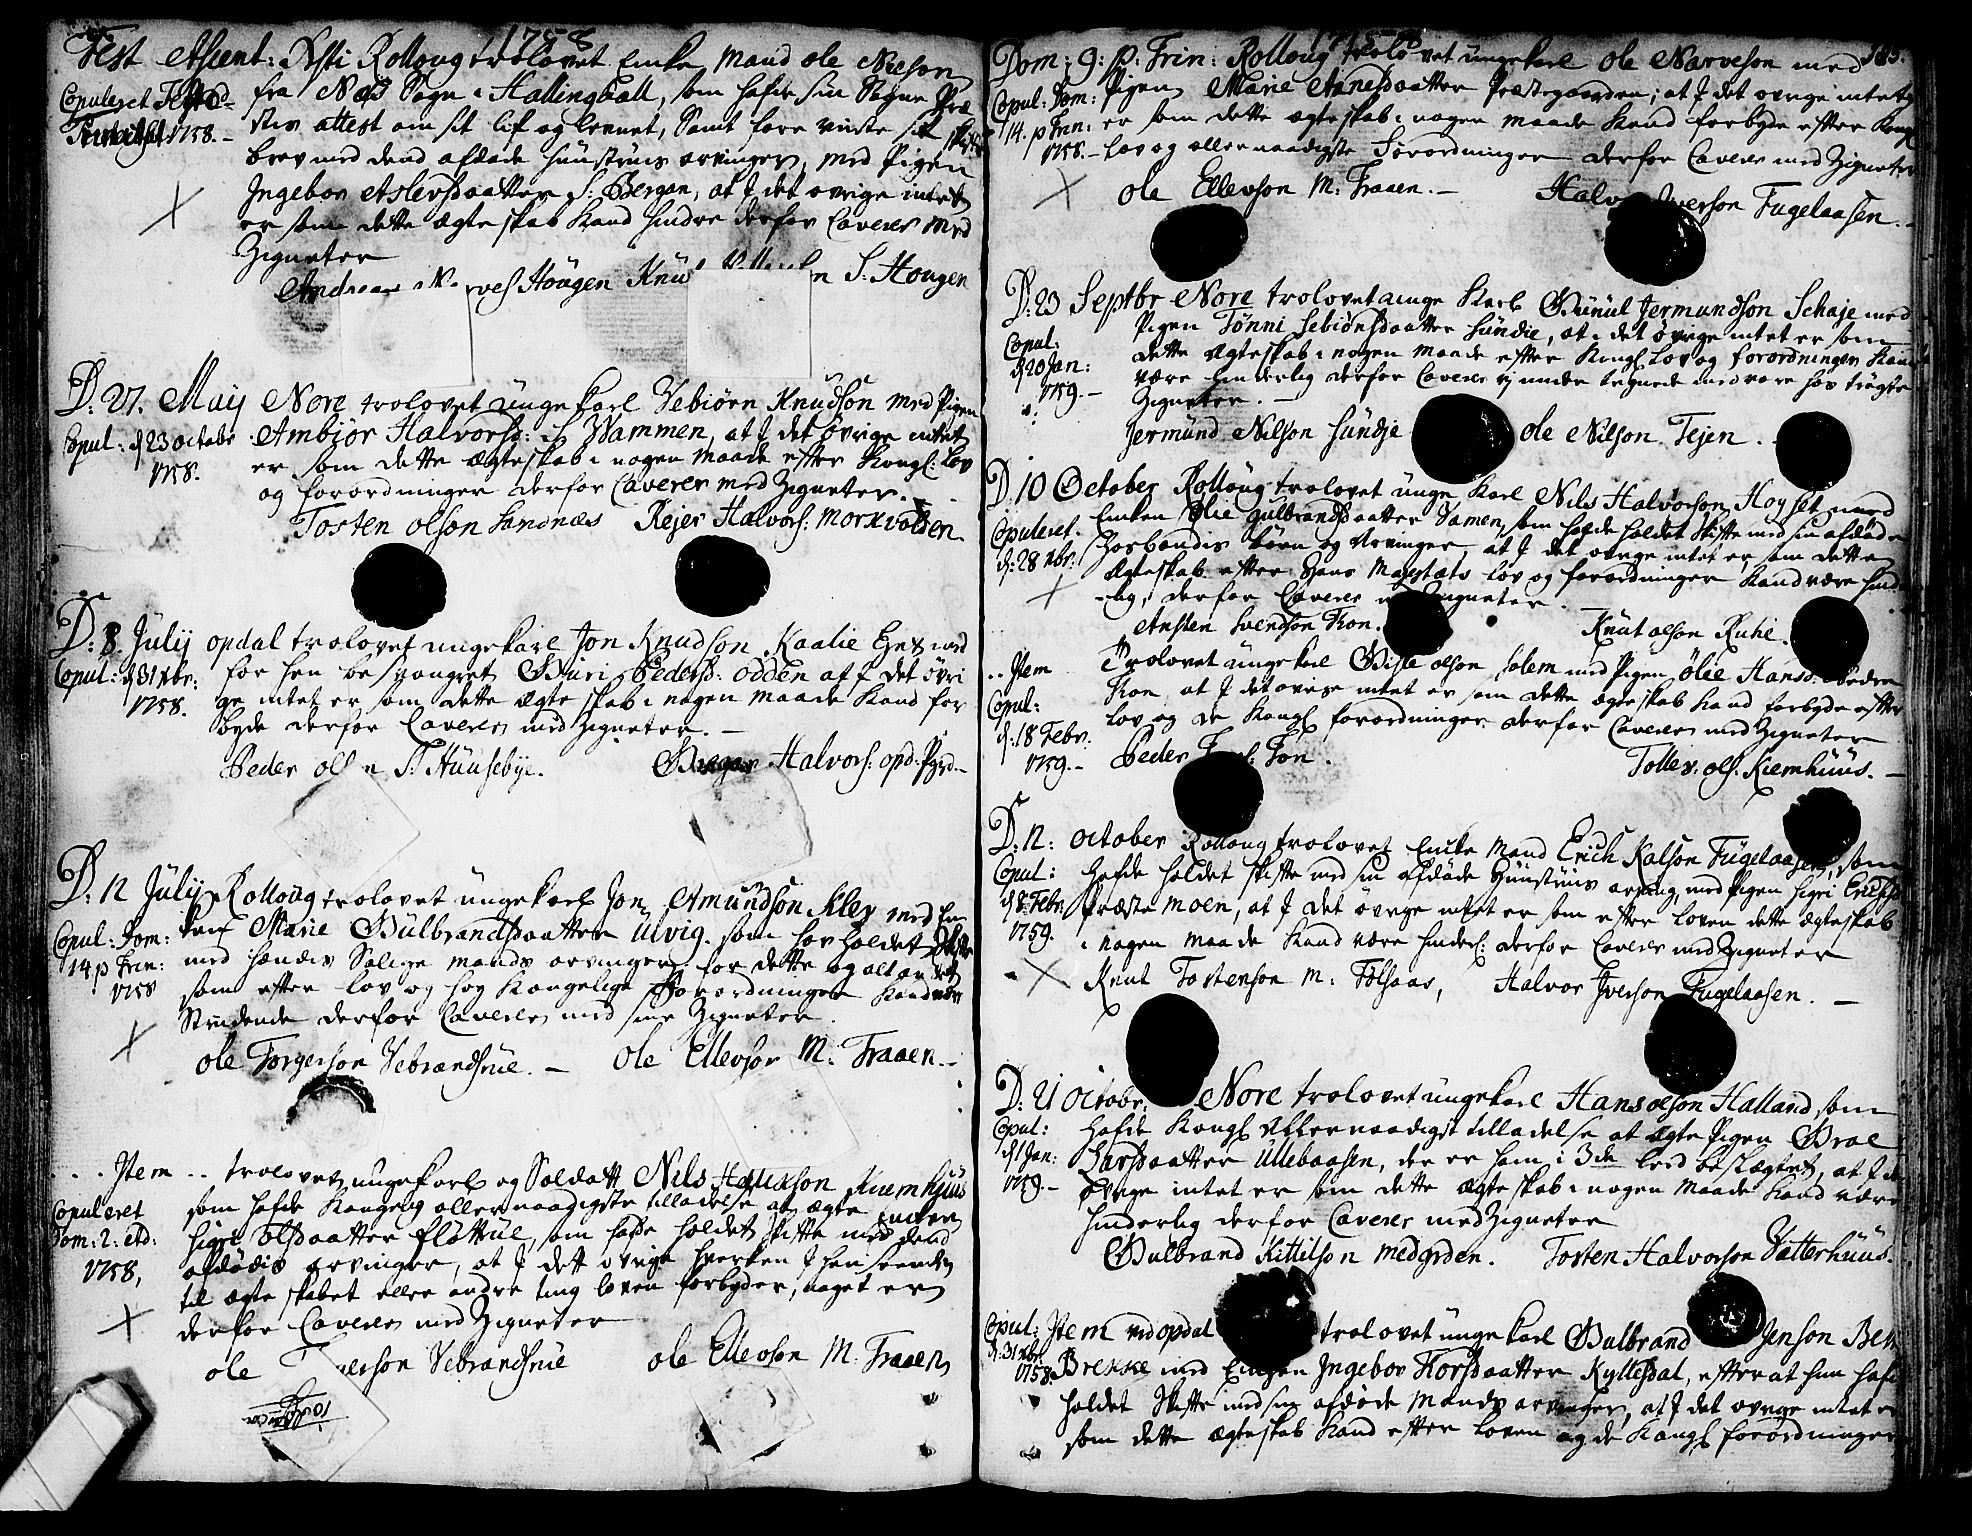 1758
Fest Ascent: Xsti Rolloug trolovet Enke Mand Ole Nilson
fra Næs Sogn i Hallingdall, som hafde sin Sogne Præ
stes attest om sit lif og levnet, Samt fore viiste sit skifte
brev med dend afdøde huustrues arvinger, med Pigen
Ingebor Aslersdaatter S: Bergan, at J det øvrige intet
er som dette ægteskab kand hindre derfor Caverer med
Zigneter
Copuleret Festo
1758.
Andreas Hougen Knud S: Hougen
D: 27. Maij Nore trolovet unge karl Vebiørn Knudson med Pigen
Ambiør Halvorsd: S Wammen, at J det øvrige intet
er som dette ægteskab i nogen maade efter Kongl: lov
og forordninger derfor Caverer med Zigneter.
Copul: d 23 octobr
1758.
Tosten olson Sandnæs Rejer Halvors: Morkvolden
D: 8. Julij opdal trolovet ungekarl Jon Knudson Kaalie
for hen besvangret Guri Pedersd: odden at J det øvri
ge intet er som dette ægteskab i nogen maade kand for
byde derfor Caverer med Zigneter.
Copul: d 31 xbr:
1758.
Peder S: Huusebye. Halvors: opd: Pgrd
D: 12 Julij Rolloug trolovet ungekarl Jon Amundson Kler med En
ken Marie Gulbrandsdaatter Ulvig. som har holdet Skifte
med hendes Salige mands arvinger, for dette og alt andet
som efter lov og høy Kongelige Forordninger kand være
Stridende derfor Caverer med sine Zigneter
Copul: Dom:
14 p Trin:
1758
Ole Torgerson Vebrandsrue. Ole Ellevson M: Fraaen
Item trolovet ungekarl og Soldatt Nils Kiemhuus
som hafde Kongelig allernaadigste tilladelse at ægte Enken
Sigri Olsdaatter Fløttrue, som hafde holdet skifte med dend
afdødes arvinger, at J dett øvrige hverken J hen seende
til ægteskabet eller andre ting loven forbyder, noget er
derfor Caverer med Zigneter
Copuleret
Dom: 2: Ad:
1758,
ole Vebrandsrue ole Ellevson M. Fraaen
1758
185.
Dom: 9: p. Trin: Rolloug trolovet ungekarl ole Narveson med
Pigen Marie Anesdaatter Præstegaarden; at J det øvrige intet
er som dette ægteskab i nogen maade kand forbyde efter Kongl
lov og allernaadigste Forordninger derfor Caverer med Zigneter
Copul: Dom:
14. p Trin:
1758.
ole Ellevson M: Fraaen. Halvor Iverson Fugelaasen.
D: 23 Septbr Nore trolovet unge Karl Gunul Jermundson Schaje med
Pigen Tønni Sebiønsdaatter Sundie, at i det øvrige intet er som
dette ægteskab i nogen maade efter Kongl lov og forordninger kand
være hinderlig derfor Caverer vi under tegnede med vore hos trøgte
Zigneter.
Copul:
d 20 Jan:
1759.
Jermund Nilson Sundje ole Nilson Tejen.
D. 10 October Rolloug trolovet unge Karl Nils Halvorson Hoyset med
Enken Olie Gulbrandsdaatter Vamen, som hafde holdet skifte med sin afdøde
hosbondis børn og Arvinger, at J det øvrige intet er som dette
ægteskab efter Hans Majestæts lov og forordninger kand være hind
lig, derfor Caverer Zigneter.
Copuleret.
d: 28 xbr:
Ansten Svendson Kon. Knut olson Ruhe.
Item Trolovet ungekarl Gisle olson Solem med Pigen Olie Hansd: Nedre
Kon at J det øvrige intet er som dette ægteskab kand forbyde efter
lov og de Kongl forordninger derfor Caverer med Zigneter
Copul:
d: 18 Febr:
1759.
Peder Kon. Tollev: ols: Kiemhuus.
D: 12: october Rolloug trolovet Encke Mand Erich Kalson Fugelaasen, som
hafde holdet skifte med sin afdøde Huustrues arving, med Pigen Sigri
Præstemoen, at J det øvrige intet er som efter loven dette ægteskab
i nogen maade kand være hinderl: derfor Caverer med Zigneter
Copul:
d 8 Febr:
1759.
Knut Tostenson M: Folsaas, Halvor Iverson Fugelaasen.
D: 21 octobr: Nore trolovet ungekarl Hans olson Halland som
hafde Kongl Allernaadigst tilladelse at ægte Pigen Groe
Larsdaatter Ullebaasen, der er ham i 3de leed beslægtet, at J det
øvrige intet er som dette ægteskab i nogen maade kand være
hinderlig derfor Caverer med Zigneter
Copul:
d 1 Jan:
1759.
Gulbrand Kittilson medgrden. Tosten Halvorson Vatterhuus.
Item ved opdal trolovet ungekarl Gulbrand Jenson
Brekke med Enken Ingebor Thorsdaatter Kyllesdal, efter at hun hafde
holdet Skifte med sin afdøde Mands arvinger, at J det øvrige intet er
som dette ægteskab kand efter loven og de Kongl forordninger
Copul:
d: 31 xbr
1758